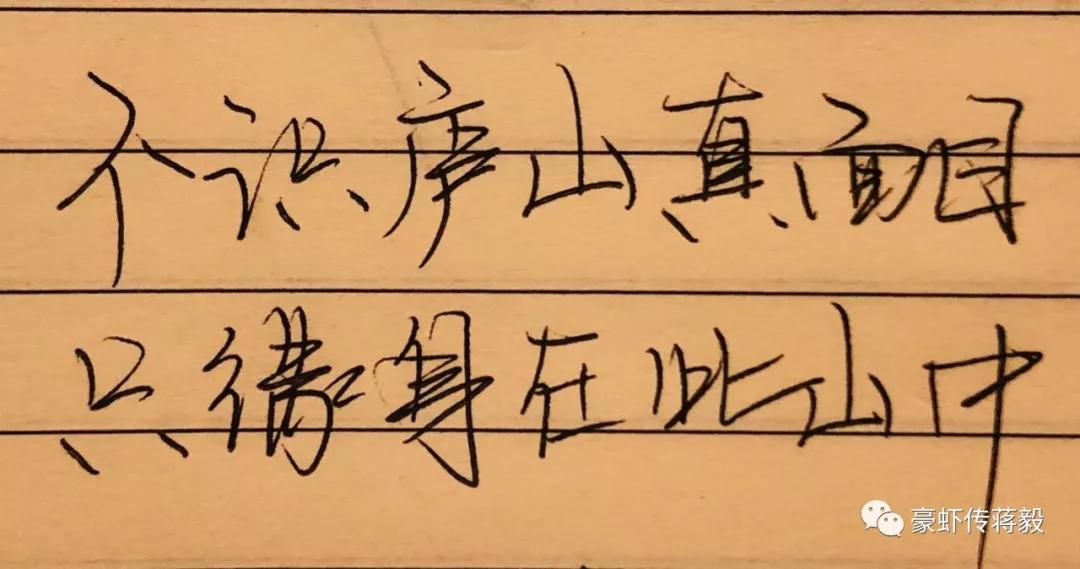 不识庐山真面目
只缘身在此山中
豪虾传蒋毅